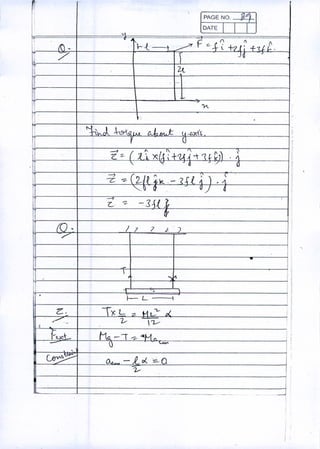 PAGE NO. 89
DATE
Q.
y
l
F⃗ = fî + 2fĵ + 3fk̂
2l
x
Find torque about y-axis.
τ⃗ = ( lî × (fî + 2fĵ + 3fk̂) . ĵ
τ⃗ = (2fl k̂ - 3fl ĵ) . ĵ
τ⃗ = -3fl
Q.
T
L
τ. T × L/2 = ML²/12 α
Fext Mg - T = Macm
Constraint acm - L/2 α = 0